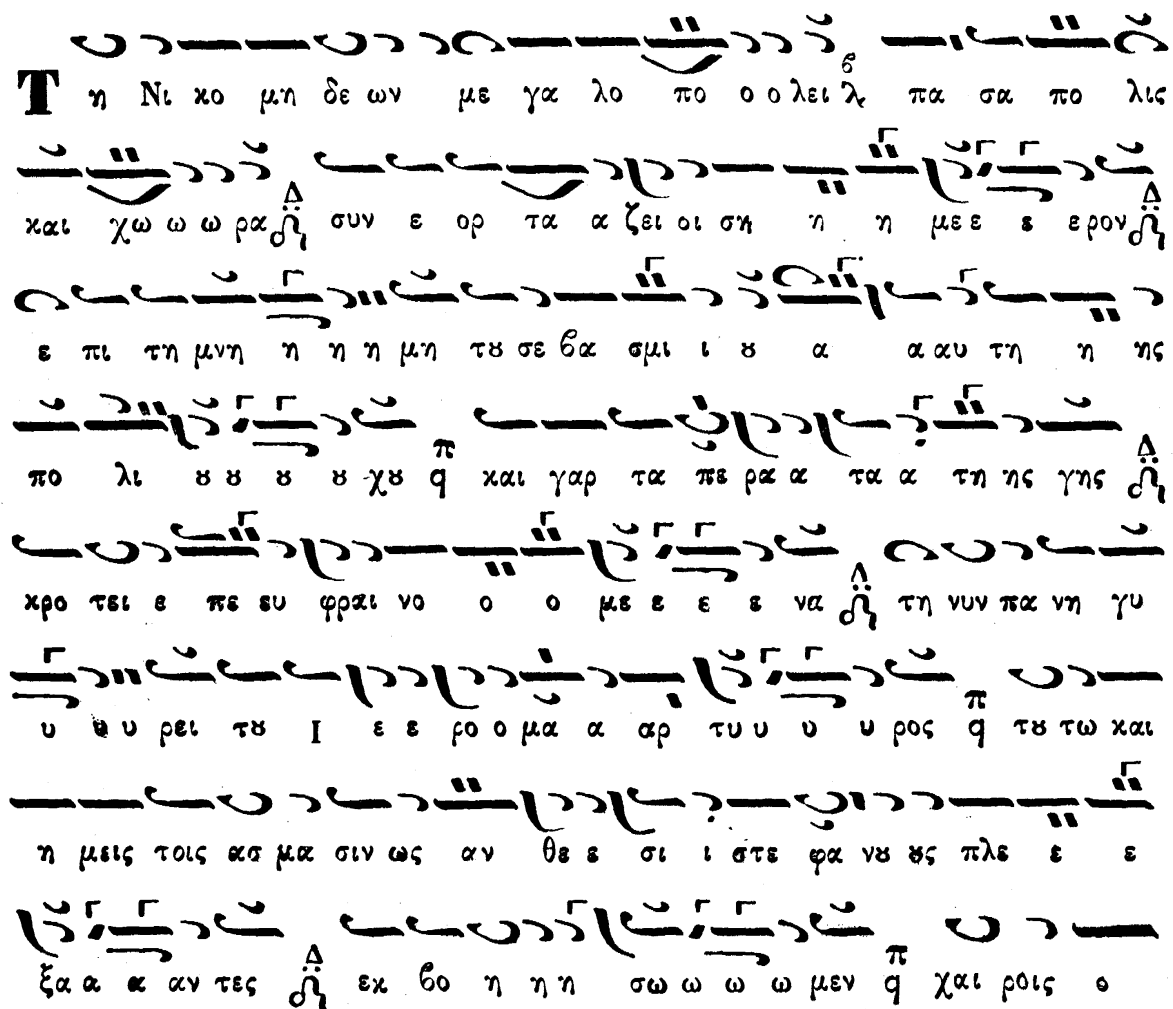 Τ η Νι κο μη δε ων με γα λο πο ο ο λει λ β πα σα πο λις
και χω ω ω ρα Δ συν ε ορ τα α ζει οι ση η η με ε ε ε ρον Δ
ε πι τη μνη η η η μη τȣ σε βα σμι ι ȣ α α αυ τη η ης
πο λι ȣ ȣ ȣ ȣ χȣ π q και γαρ τα πε ρα α τα α τη ης γης Δ
κρο τει ε πε ευ φραι νο ο ο με ε ε ε να Δ τη νυν πα νη γυ
υ υ υ ρει τȣ Ι ε ε ρο ο μα α αρ τυ υ υ υ ρος π q τȣ τω και
η μεις τοις ασ μα σιν ως αν θε ε σι ι στε φα νȣ ȣς πλε ε ε
ξα α α αν τες Δ εκ βο η η η σω ω ω ω μεν π q χαι ροις ο